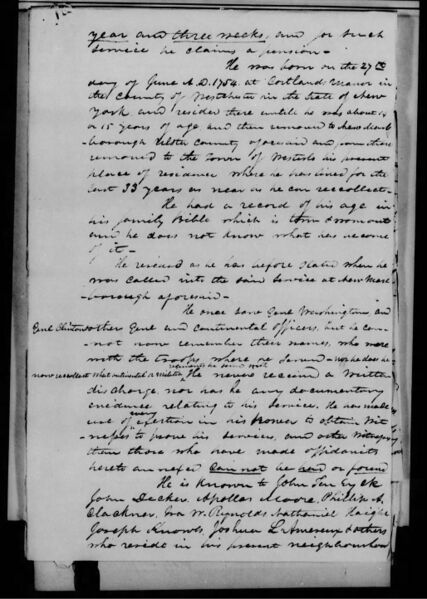 year and three weeks, and for such
service he claims a pension –
He was born on the 27th
day of June A.D. 1754 at Cortlandt Manor in
the County of Westchester in the State of New
York and resided there until he was about 14
or 15 years of age and then removed to New Marl
borough Ulster County aforesaid and from there
removed to the Town of Westerlo his present
place of residence where he has lived for the
last 33 years as near as he can recollect –
He had a record of his age in
his family Bible which is torn & wornout
and he does not know what has become
of it –
He resided as he has before stated when he
was called into the said service at New Marl
borough aforesaid –
He once saw Genl Washington and
Genl Clinton & other Genl and Continental officers, but he can
not now remember their names, who were
with the troops where he served – nor does he
now recollect what continental or militia regiments he served with
He never received a written
discharge nor has he any documentary
evidence relating to his services. He has made
use of every exertion in his power to obtain wit
nesses to prove his services, and other witnesses
than those who have made affidavits
hereto annexed can not be had or found
He is known to John Ten Eyck
John Decker, Apollos Moore, Phillip A.
Clackner, Ira W. Reynolds Nathaniel Haight
Joseph Knowls, Joshua L'Amereux & others
who reside in his present neighbourhood